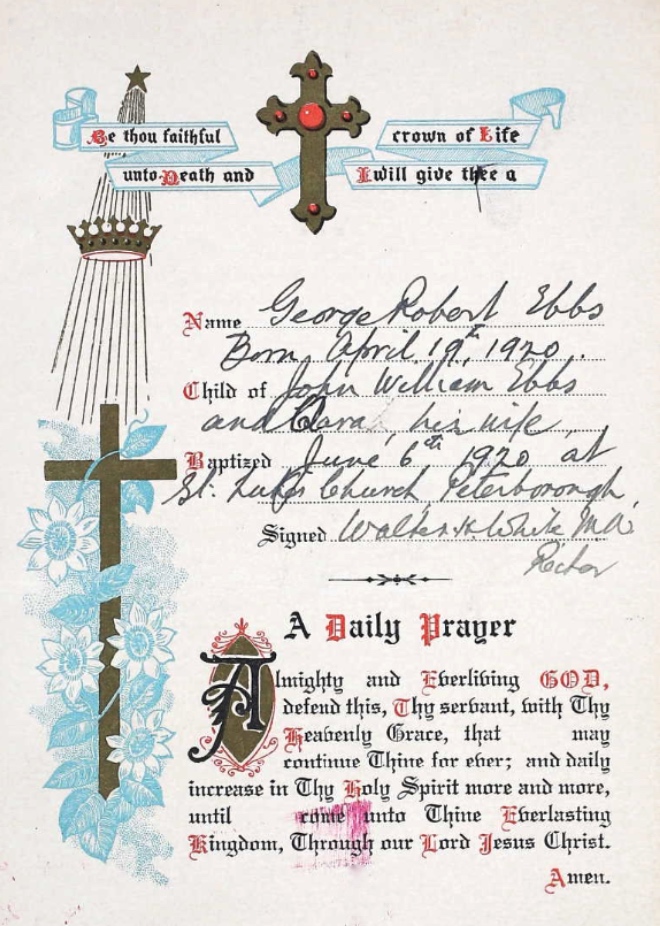 Be thou faithful
unto Death and
I will give thee a
crown of Life
Name George Robert Ebbs
Born, April 19th, 1920.
Child of John William Ebbs
and Clara, his wife,
Baptized June 6th 1920 at
St. Luke's Church, Peterborough,
Signed Walter H. White M.A.
Rector
A Daily Prayer
Almighty and Everliving GOD,
defend this, Thy servant, with Thy
Heavenly Grace, that may
continue Thine for ever; and daily
increase in Thy Holy Spirit more and more,
until come unto Thine Everlasting
Kingdom, Through our Lord Jesus Christ.
Amen.